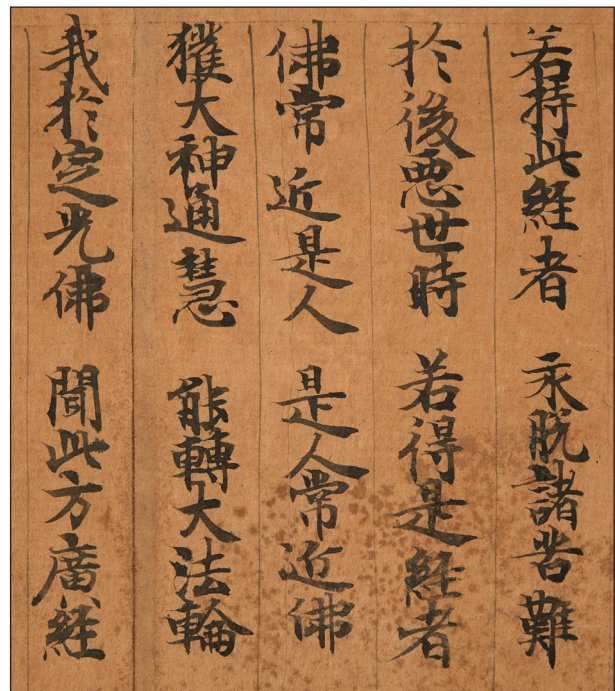 若持此経者 永脱諸苦難
於後悪世時 若得是経者
佛常近是人 是人常近佛
獲大神通慧 能轉大法輪
我於定光佛 聞此方廣経